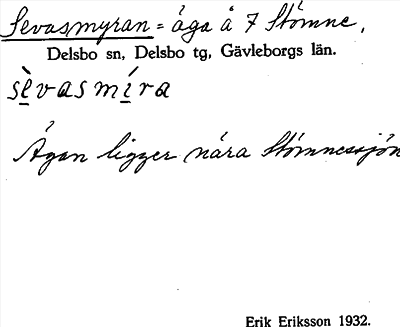 Sevasmyran = äga å 7 Stömne,
Delsbo sn, Delsbo tg, Gävleborgs län.
sὲvasmíra
Ägan ligger nära Stömnessjön
Erik Eriksson 1932.